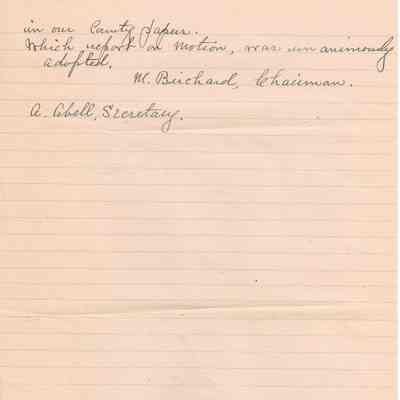 in our County papers.
Which report on motion, was unanimously
adopted.
M. Birchard, Chairman.
A. Abell, Secretary.